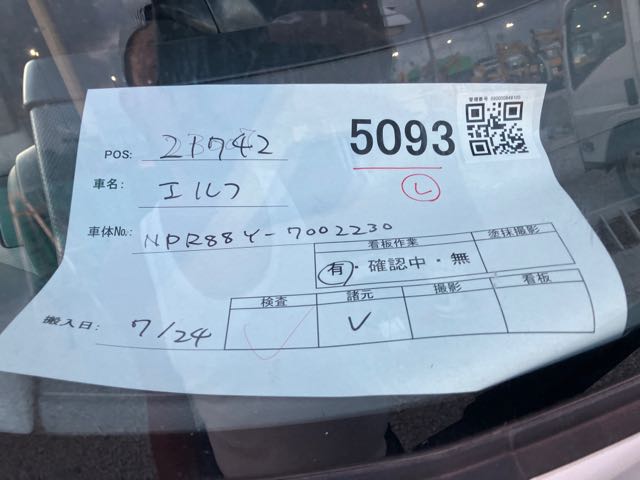 管理番号 690000849105
5093
POS: 2B742
車名: エルフ
㋹
車体No.: NPR88Y-7002230
看板作業 塗抹撮影
有・確認中・無
検査 諸元 撮影 看板
搬入日: 7/24